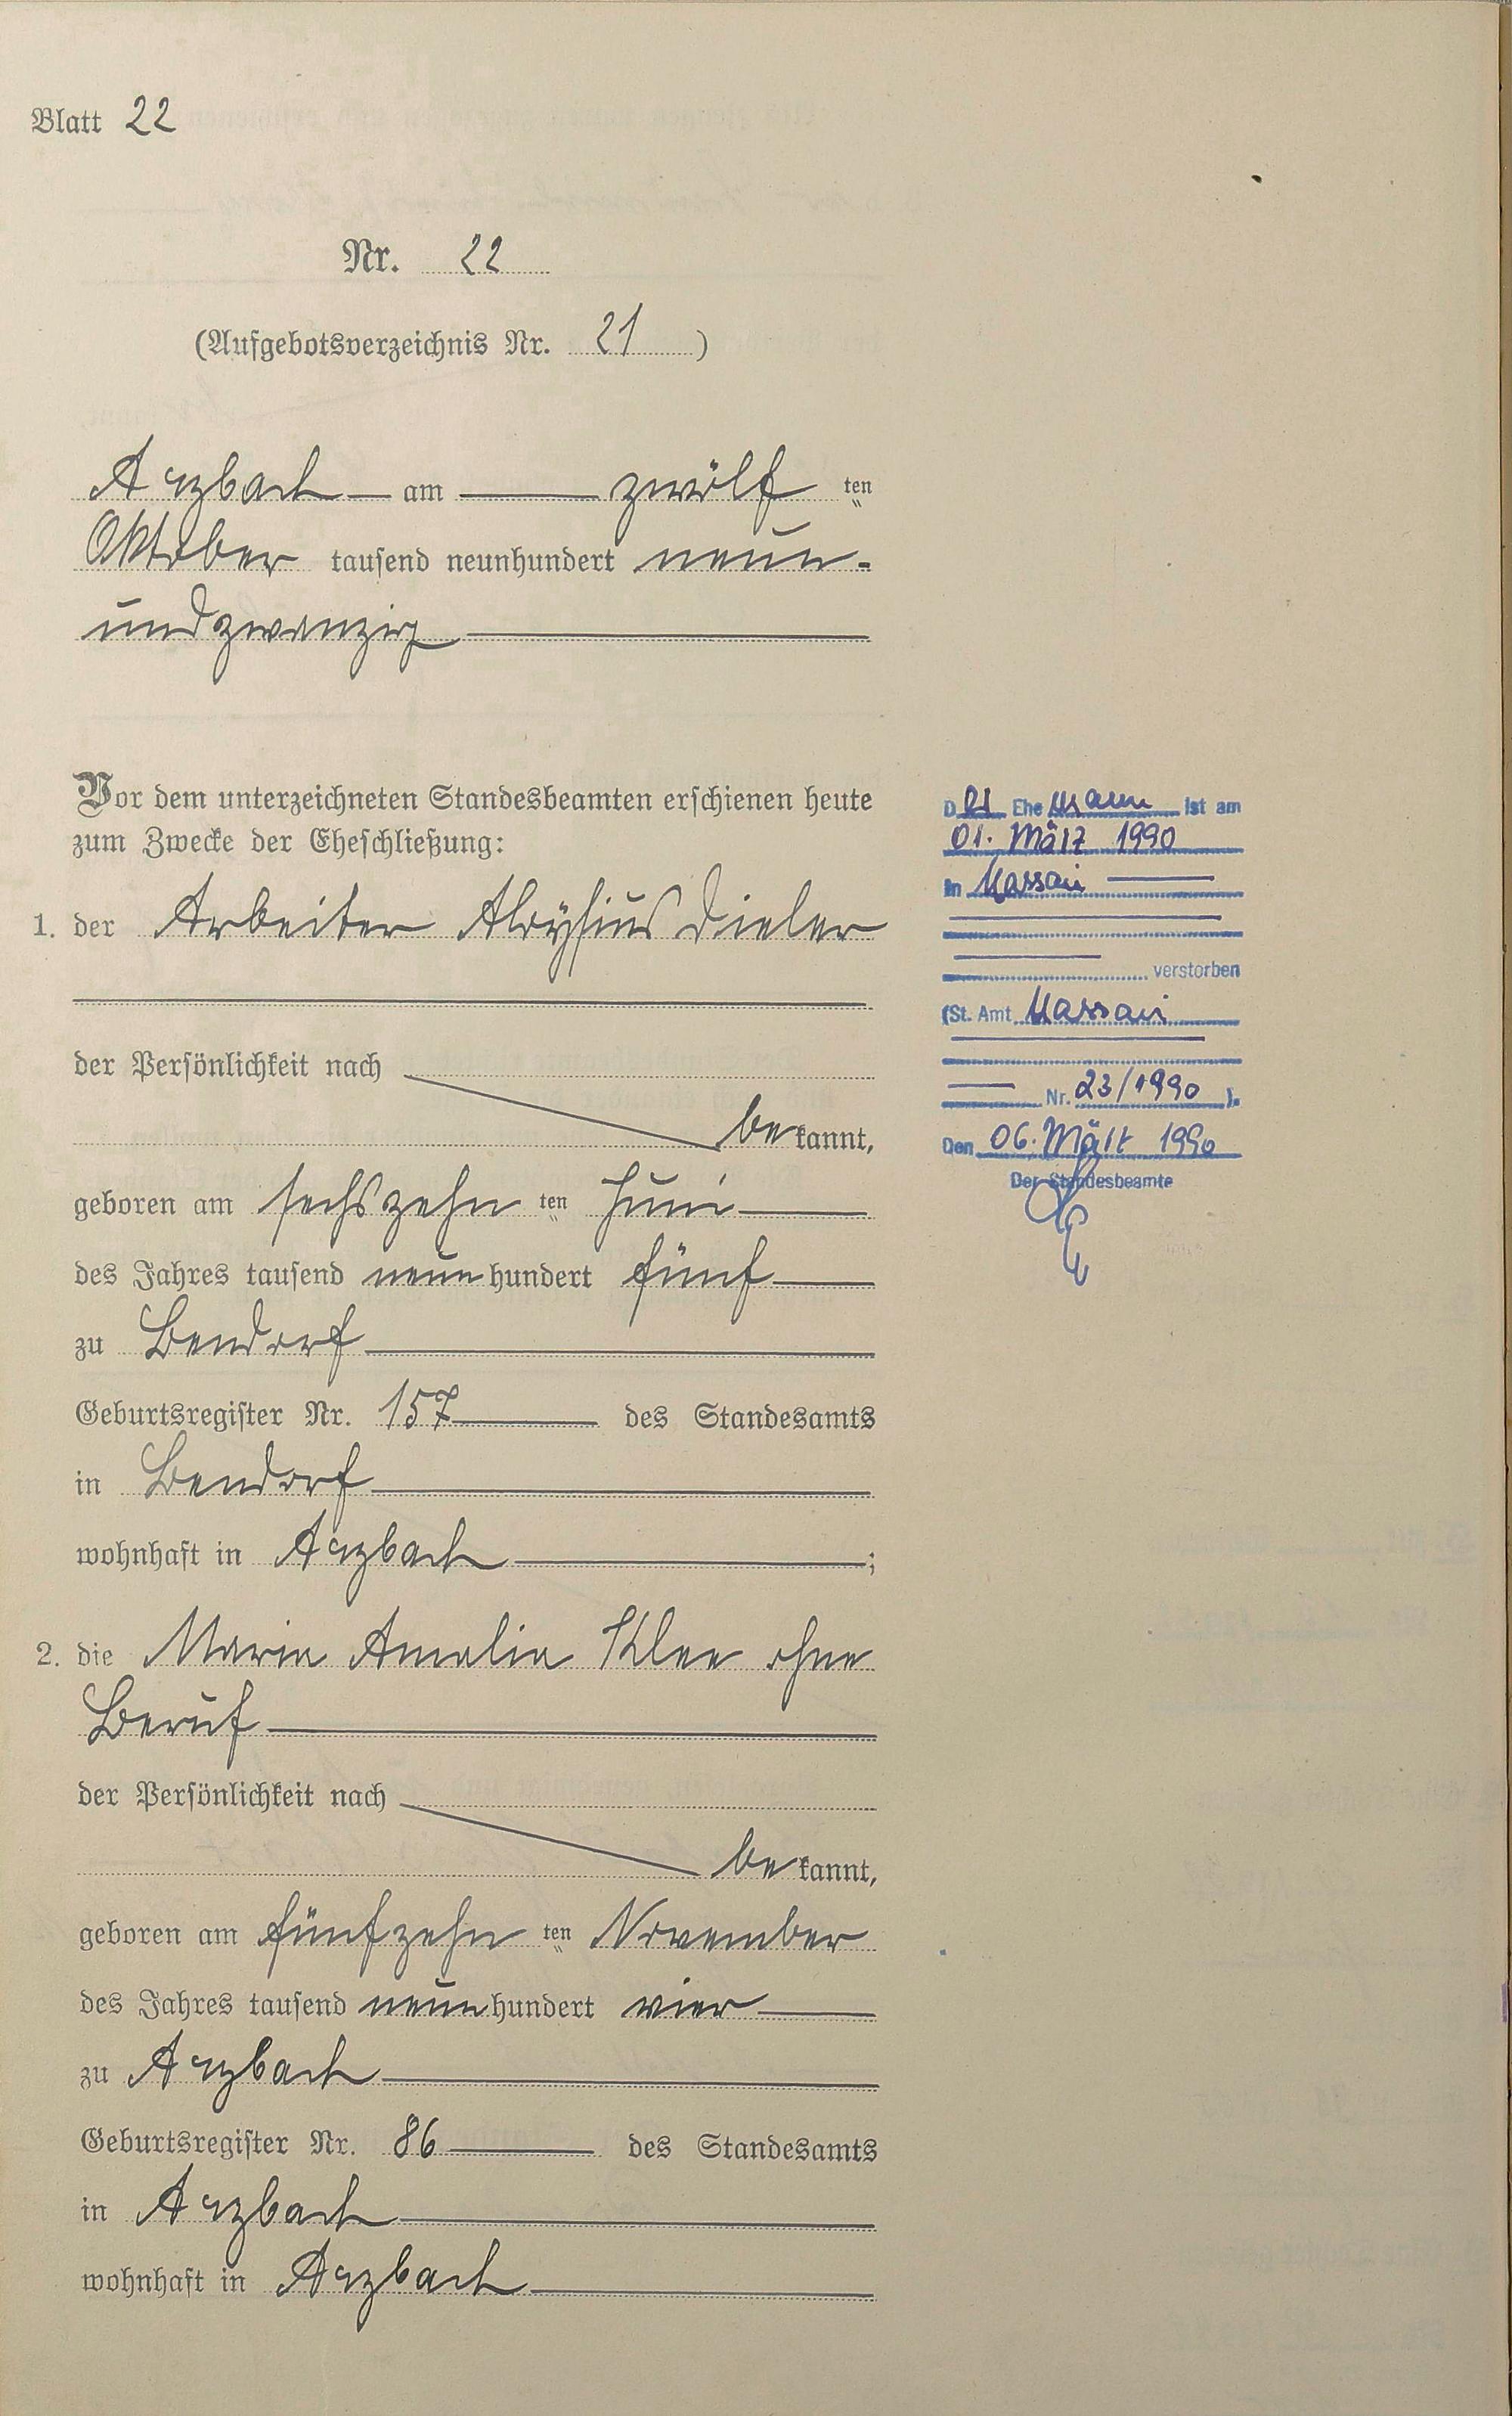 Blatt 22
Nr. 22
(Aufgebotsverzeichnis Nr. 21)
Arzbach am zwölf ten
Oktober tausend neunhundert neun-
undzwanzig
Vor dem unterzeichneten Standesbeamten erschienen heute
zum Zwecke der Eheschließung:
1. der Arbeiter Aloysius Dieler
der Persönlichkeit nach
bekannt,
geboren am sechszehn ten Juni
des Jahres tausend neunhundert fünf
zu Bendorf
Geburtsregister Nr. 157 des Standesamts
in Bendorf
wohnhaft in Arzbach ;
2. die Maria Amalia Klee ohne
Beruf
der Persönlichkeit nach
bekannt,
geboren am fünfzehn ten November
des Jahres tausend neunhundert vier
zu Arzbach
Geburtsregister Nr. 86 des Standesamts
in Arzbach
wohnhaft in Arzbach
Der Ehemann ist am
01. März 1990
in Nassau
verstorben
(St. Amt Nassau
Nr. 23/1990 ).
Den 06. März 1990
Der Standesbeamte